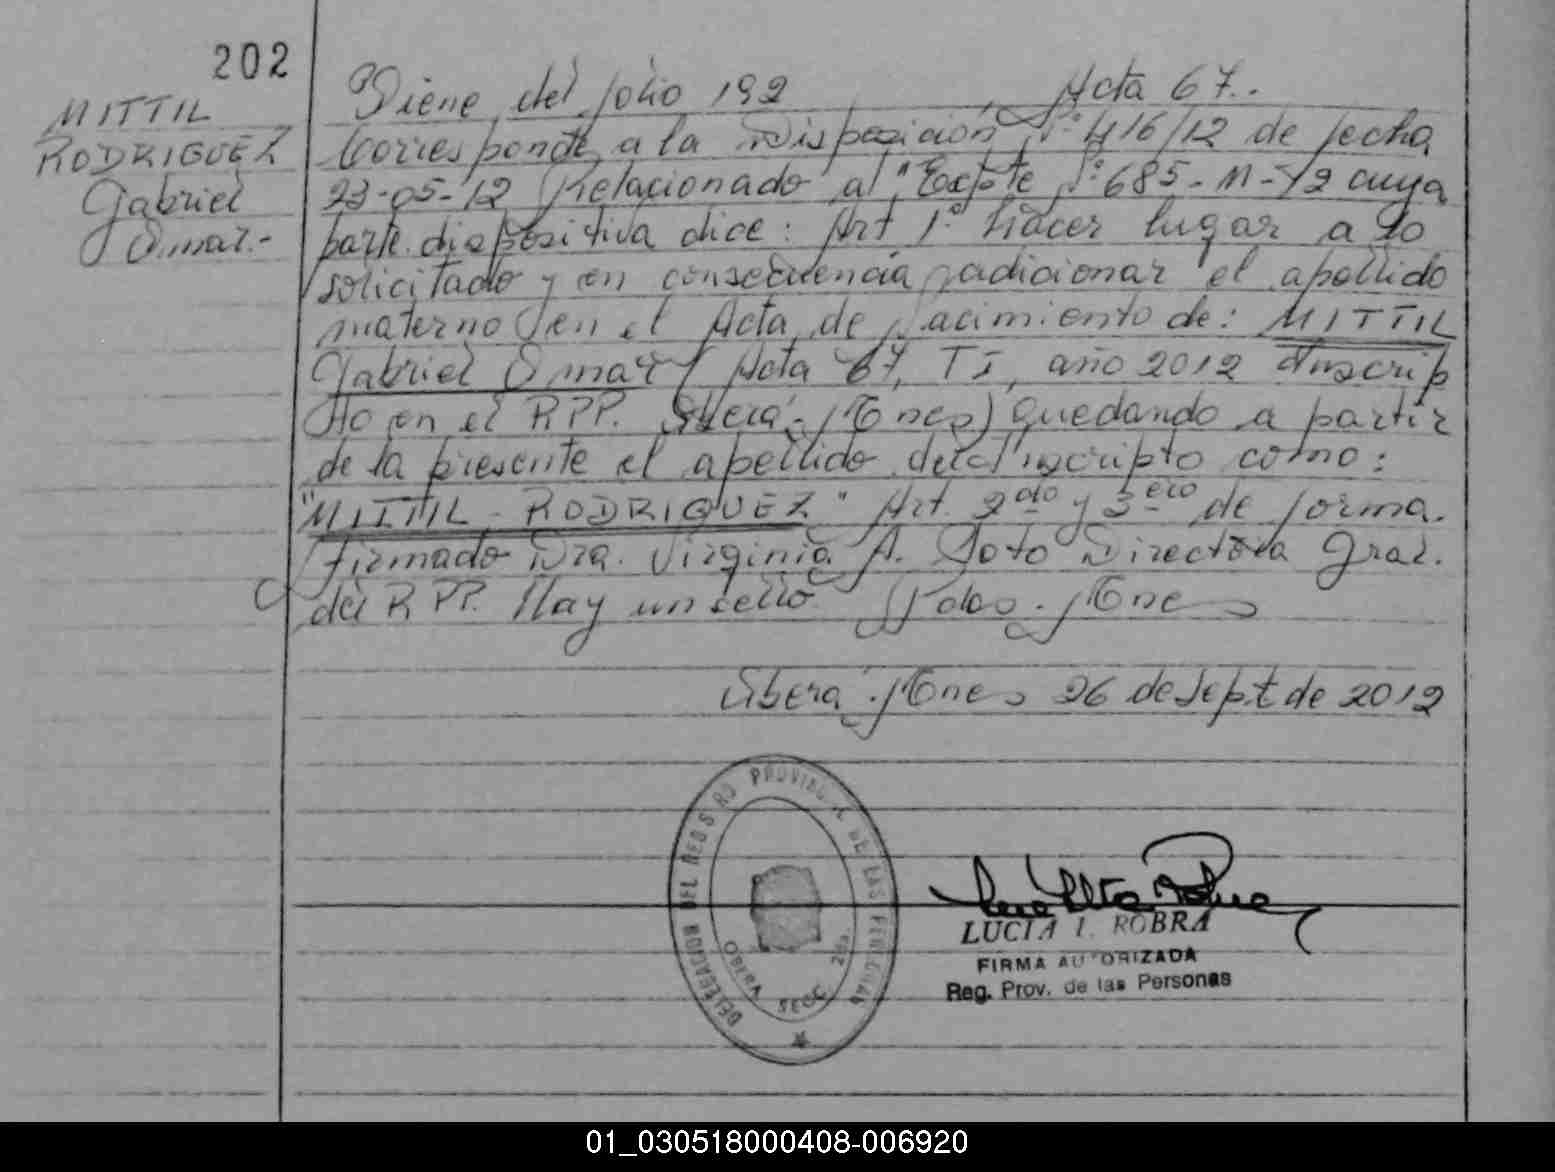 202
MITTIL
RODRIGUEZ
Gabriel
Omar.-
Viene del folio 192 Acta 67..
Corresponde a la Disposición N° 416/12 de fecha
23-05-12 Relacionado al "Expte N° 685-M-12 cuya
parte dispositiva dice: Art 1° Hacer lugar a lo
solicitado y en consecuencia adicionar el apellido
materno en el Acta de Nacimiento de: MITTIL
Gabriel Omar (Acta 67, T I, año 2012 Inscrip
to en el RPP. Iberá-Mnes) quedando a partir
de la presente el apellido del Inscripto como:
"MITTIL - RODRIGUEZ" Art. 2do y 3ero de forma.
firmado Dra. Virginia A. Soto Directora Gral.
del RPP. Hay un sello Pdas. Mnes
Iberá Mnes 26 de Sept de 2012
DELEGACION DEL REGISTRO PROVINCIAL DE LAS PERSONAS
SECC. 2da.
LUCIA I. ROBRA
FIRMA AUTORIZADA
Reg. Prov. de las Personas
01_030518000408-006920